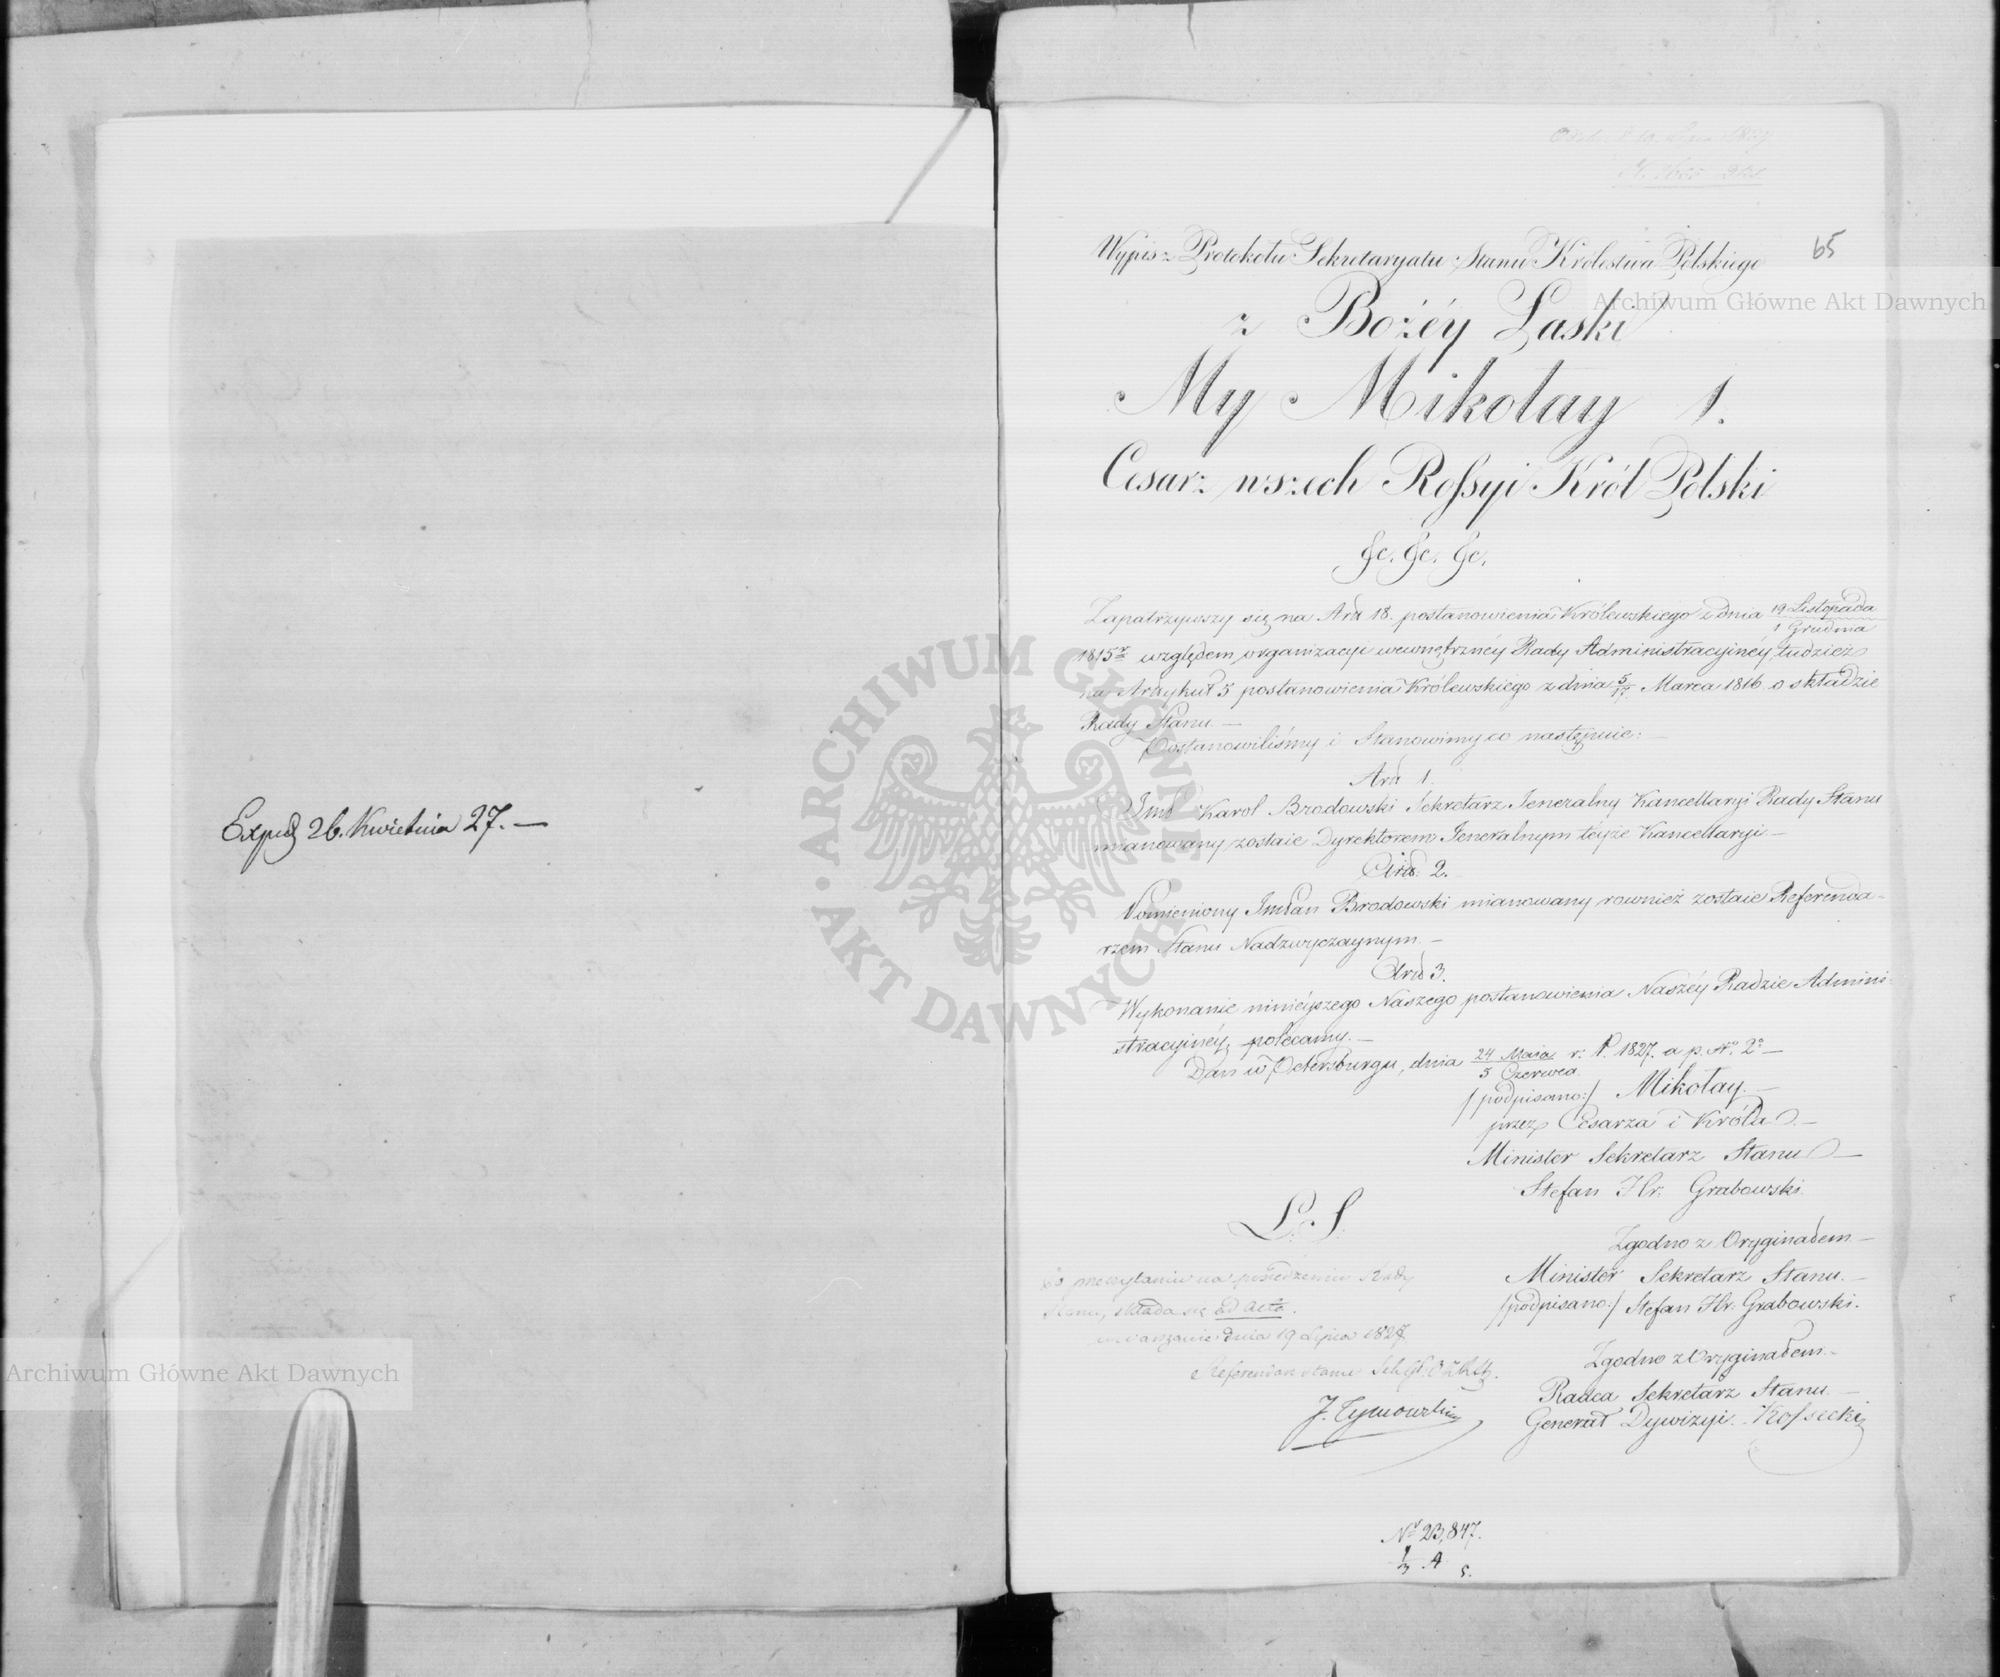 Exped 26. Kwietnia 27. —
65
Wypis z Protokołu Sekretaryatu Stanu Królestwa Polskiego
z Bożéy Łaski
My Mikołay 1.
Cesarz wszech Rossyi Król Polski
&c. &c. &c.
Zapatrzywszy się na Art 18. postanowienia Królewskiego z dnia 19 Listopada / 1 Grudnia
1815r względem organizacyi wewnętrznéy Rady Administracyinéy, tudzież
na Artykuł 5 postanowienia Królewskiego z dnia 5/17 Marca 1816 o składzie
Rady Stanu. —
Postanowiliśmy i Stanowimy co następuie: —
Art 1.
Karol Brodowski Sekretarz Jeneralny Kancellaryi Rady Stanu
mianowany zostaie Dyrektorem Jeneralnym téyże Kancellaryi —
Art. 2.
Womieniony JmPan Brodowski mianowany rownież zostaie Referenda-
rzem Stanu Nadzwyczaynym. —
Art 3.
Wykonanie ninieyszego Naszego postanowienia Naszéy Radzie Admini-
stracyinéy polecamy. —
Dan w Petersburgu, dnia 24 Maia / 5 Czerwca r: P. 1827. a p. No 2o —
/podpisano:/ Mikołay. —
przez Cesarza i Króla. —
Minister Sekretarz Stanu —
Stefan Hr. Grabowski.
L. S.
Zgodno z Oryginałem —
Minister Sekretarz Stanu. —
/podpisano:/ Stefan Hr: Grabowski.
Zgodno z Oryginałem. —
Radca Sekretarz Stanu. —
Generał Dywizyi. Kossecki
Po przeczytaniu na posiedzeniu Rady
Stanu, składa się ad acta.
w Warszawie dnia 19 Lipca 1827
Referendarz Stanu
J. Tymowski
Nr 23,847.
A
Archiwum Główne Akt Dawnych
Archiwum Główne Akt Dawnych
ARCHIWUM GŁÓWNE
AKT DAWNYCH